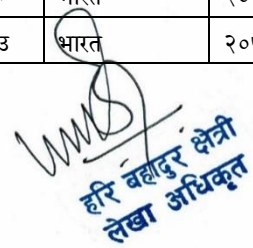 उ भारत २०
हरि बहादुर क्षेत्री
लेखा अधिकृत